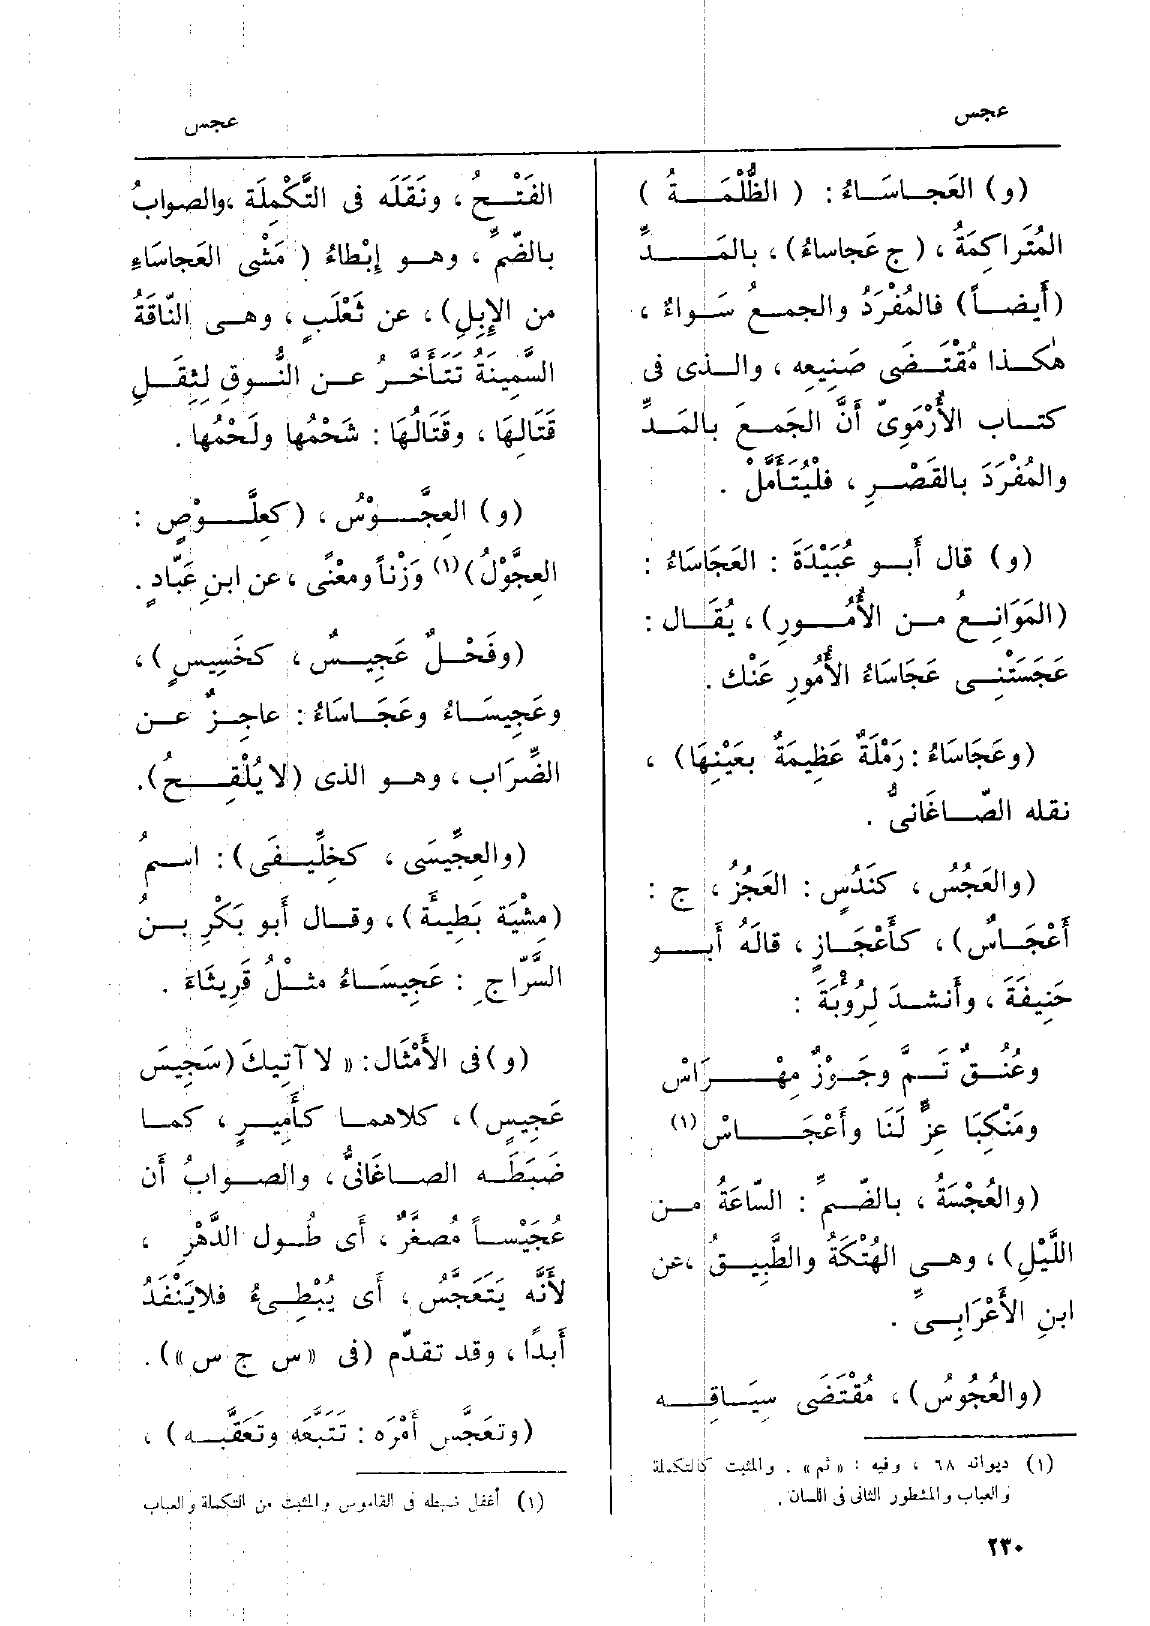 عجس
عجس
(و) العَجاسَاءُ : ( الظُّلْمَةُ )
المُتَراكِمَةُ ، (ج عَجاساءُ) ، بالمَدِّ
(أَيضاً) فالمُفْرَدُ والجمعُ سَواءٌ ،
هٰكذا مُقْتَضَى صَنِيعِه ، والذى فى
كتاب الأُرْمَوِىّ أَنَّ الجَمعَ بالمَدِّ
والمُفْرَدَ بالقَصْرِ ، فلْيُتَأَمَّلْ .
(و) قال أَبو عُبَيْدَةَ : العَجَاسَاءُ :
(المَوَانِعُ من الأُمُورِ) ، يُقَال :
عَجَسَتْنِى عَجَاسَاءُ الأُمُورِ عَنْك .
(وعَجَاسَاءُ : رَمْلَةٌ عَظِيمَةٌ بعَيْنِهَا) ،
نقله الصّاغَانىُّ .
(والعَجُسُ ، كنَدُسٍ : العَجُزُ ، ج :
أَعْجَاسٌ) ، كأَعْجَازٍ ، قالَهُ أَبو
حَنِيفَةَ ، وأَنشدَ لِرُؤْبَةَ :
وعُنُقٌ تَمَّ وجَوْزٌ مِهْرَاسْ
ومَنْكِبَا عِزٍّ لَنَا وأَعْجَاسْ (١)
(والعُجْسَةُ ، بالضّمِّ : السّاعَةُ من
اللَّيْلِ) ، وهى الهُتْكَةُ والطَّبِيقُ ،عن
ابنِ الأَعْرَابِىِّ .
(والعُجُوسُ) ، مُقْتَضَى سِيَاقِه
(١) ديوانه ٦٨ ، وفيه : «ثم» . والمثبت كالتكملة
والعباب والمشطور الثانى فى اللسان .
٢٣٠
الفَتْحُ ، ونَقَلَه فى التَّكْمِلَة ،والصوابُ
بالضّمِّ ، وهو إِبْطَاءُ ( مَشْى العَجاسَاءِ
من الإِبِلِ) ، عن ثَعْلَبٍ ، وهى النّاقَةُ
السَّمِينَةُ تَتَأَخَّرُ عن النُّوقِ لِثِقَلِ
قَتَالِهَا ، وقَتَالُهَا : شَحْمُها ولَحْمُها .
(و) العِجَّوْسُ ، (كعِلَّوْصٍ :
العِجَّوْلُ) (١) وَزْناً ومعْنًى ، عن ابنِ عَبّادٍ .
(وفَحْلٌ عَجِيسٌ ، كخَسِيسٍ ) ،
وعَجِيسَاءُ وعَجَاسَاءُ : عاجِزٌ عن
الضِّرَاب ، وهو الذى (لا يُلْقِحُ) .
(والعِجِّيسَى ، كخِلِّيفَى) : اسمُ
(مِشْيَة بَطِيئَة) ، وقال أَبو بَكْرِ بنُ
السَّرّاجِ : عَجِيسَاءُ مثلُ قَرِيثَاءَ .
(و) فى الأَمْثَال : « لا آتِيكَ (سَجِيسَ
عَجِيسٍ) ، كلاهما كأَمِيرٍ ، كما
ضَبَطَه الصاغَانىُّ ، والصوابُ أَن
عُجَيْساً مُصغَّرٌ ، أَى طُول الدَّهْرِ ،
لأَنَّه يَتَعَجَّس ، أَى يُبْطِىءُ فلا يَنْفَدُ
أَبدًا ، وقد تقدّم (فى «س ج س») .
(وتَعَجَّس أَمْرَه : تَتَبَّعَه وتَعَقَّبه ) ،
(١) أغفل ضبطه فى القاموس والمثبت من التكملة والعباب